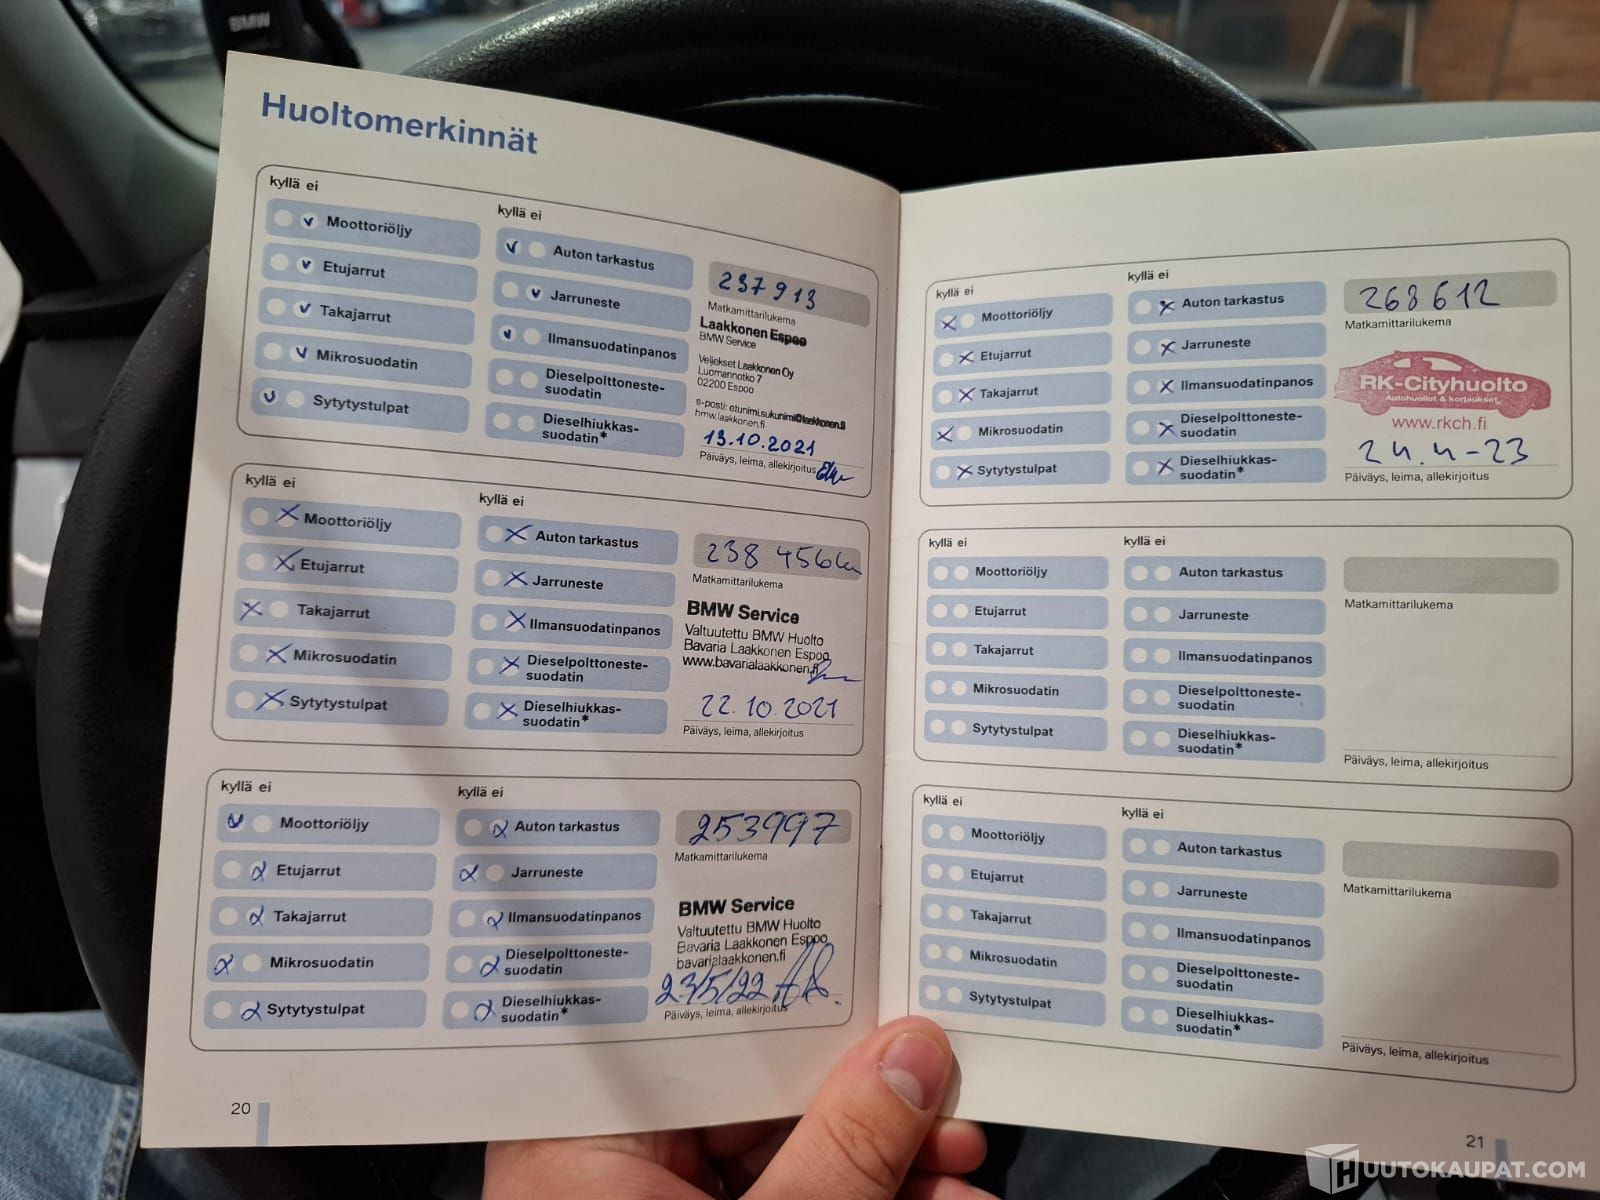 BMW
Huoltomerkinnät
kyllä ei
Moottoriöljy
Etujarrut
Takajarrut
Mikrosuodatin
Sytytystulpat
kyllä ei
Auton tarkastus
Jarruneste
Ilmansuodatinpanos
Dieselpolttoneste-
suodatin
Dieselhiukkas-
suodatin*
237913
Matkamittarilukema
Laakkonen Espoo
BMW Service
Veljekset Laakkonen Oy
Luomannotko 7
02200 Espoo
s-posti: etunimi.sukunimi@laakkonen.fi
hmw.laakkonen.fi
13.10.2021
Päiväys, leima, allekirjoitus
kyllä ei
Moottoriöljy
Etujarrut
Takajarrut
Mikrosuodatin
Sytytystulpat
kyllä ei
Auton tarkastus
Jarruneste
Ilmansuodatinpanos
Dieselpolttoneste-
suodatin
Dieselhiukkas-
suodatin*
238 456km
Matkamittarilukema
BMW Service
Valtuutettu BMW Huolto
Bavaria Laakkonen Espoo
www.bavarialaakkonen.fi
22.10.2021
Päiväys, leima, allekirjoitus
kyllä ei
Moottoriöljy
Etujarrut
Takajarrut
Mikrosuodatin
Sytytystulpat
kyllä ei
Auton tarkastus
Jarruneste
Ilmansuodatinpanos
Dieselpolttoneste-
suodatin
Dieselhiukkas-
suodatin*
253997
Matkamittarilukema
BMW Service
Valtuutettu BMW Huolto
Bavaria Laakkonen Espoo
bavarialaakkonen.fi
23/5/22
Päiväys, leima, allekirjoitus
20
kyllä ei
Moottoriöljy
Etujarrut
Takajarrut
Mikrosuodatin
Sytytystulpat
kyllä ei
Auton tarkastus
Jarruneste
Ilmansuodatinpanos
Dieselpolttoneste-
suodatin
Dieselhiukkas-
suodatin*
268612
Matkamittarilukema
RK-Cityhuolto
Autohuollot & korjaukset
www.rkch.fi
24.4-23
Päiväys, leima, allekirjoitus
kyllä ei
Moottoriöljy
Etujarrut
Takajarrut
Mikrosuodatin
Sytytystulpat
kyllä ei
Auton tarkastus
Jarruneste
Ilmansuodatinpanos
Dieselpolttoneste-
suodatin
Dieselhiukkas-
suodatin*
Matkamittarilukema
Päiväys, leima, allekirjoitus
kyllä ei
Moottoriöljy
Etujarrut
Takajarrut
Mikrosuodatin
Sytytystulpat
kyllä ei
Auton tarkastus
Jarruneste
Ilmansuodatinpanos
Dieselpolttoneste-
suodatin
Dieselhiukkas-
suodatin*
Matkamittarilukema
Päiväys, leima, allekirjoitus
21
HUUTOKAUPAT.COM